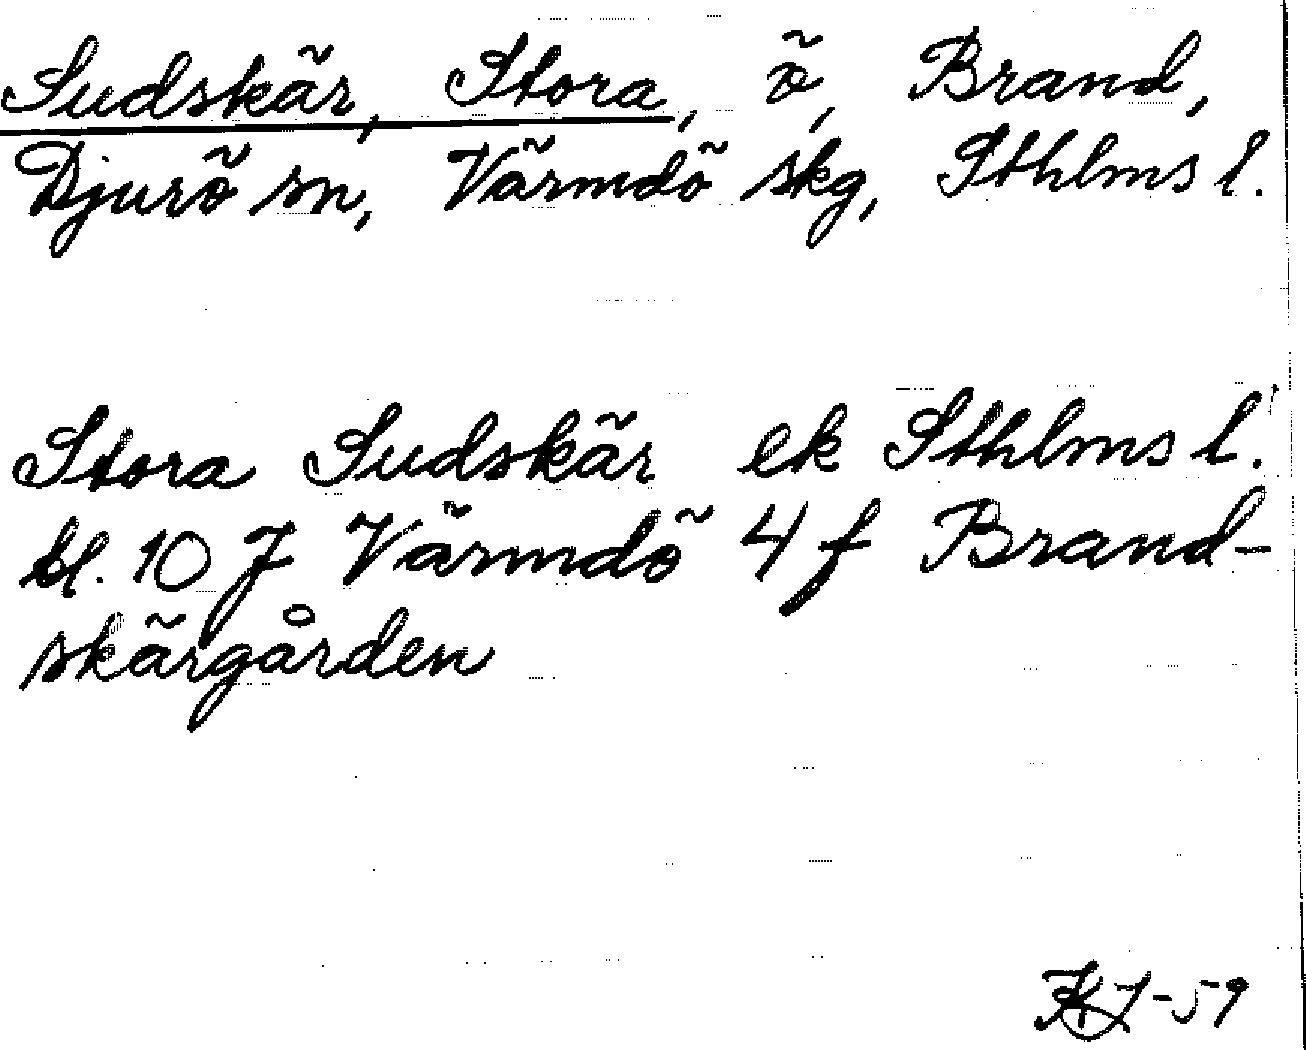 Sudskär, Stora, ö, Brand,
Djurö sn, Värmdö skg, Sthlms l.
Stora Sudskär ek Sthlms l.
bl. 10 J Värmdö 4 f Brand-
skärgården
-59